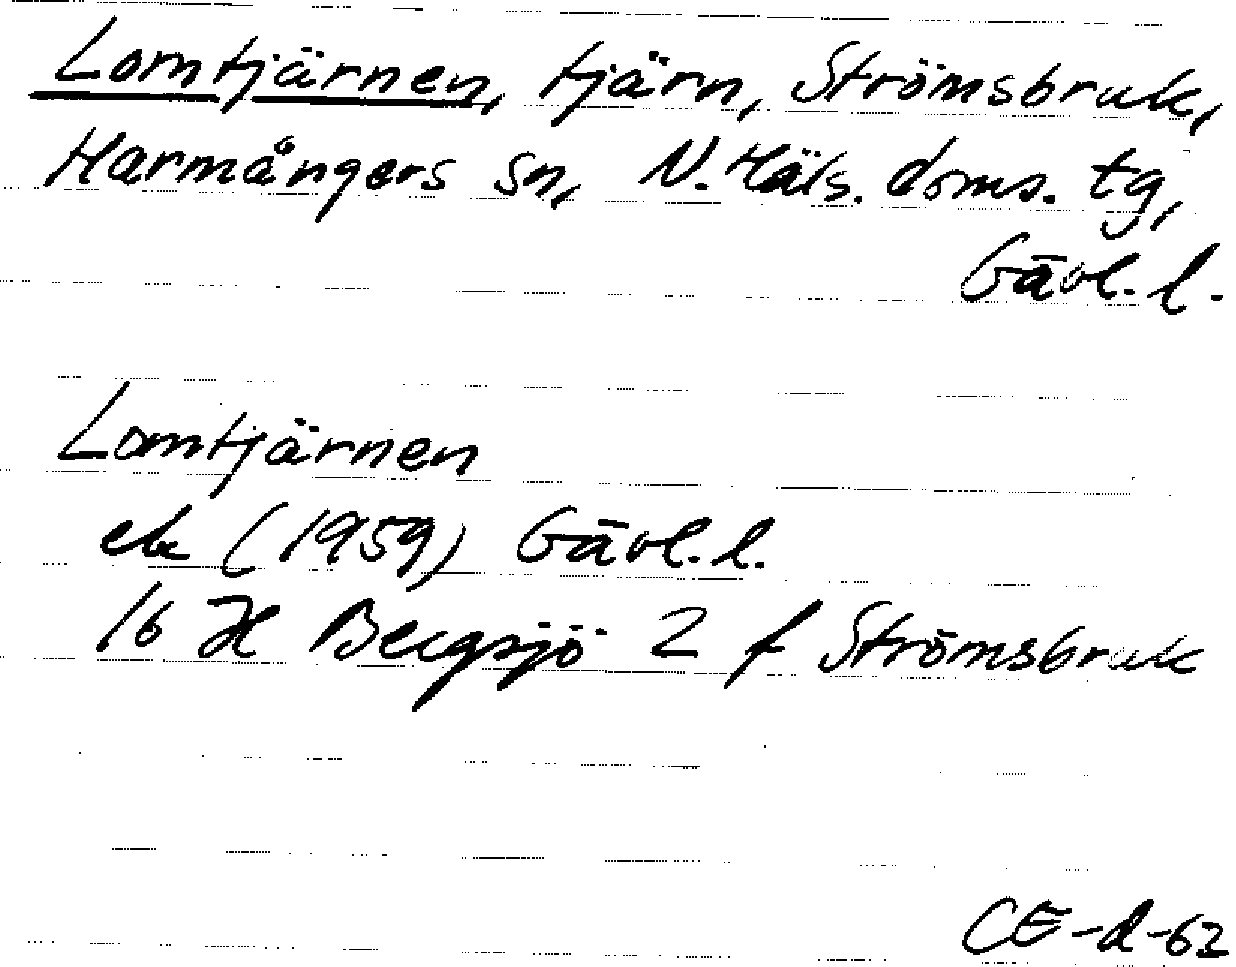 Lomtjärnen, tjärn, Strömsbruk,
Harmångers sn, N. Häls. doms. tg,
Gävl. l.
Lomtjärnen
ek (1959) Gävl. l.
16 H Bergsjö 2 f Strömsbruk
CE-d-62